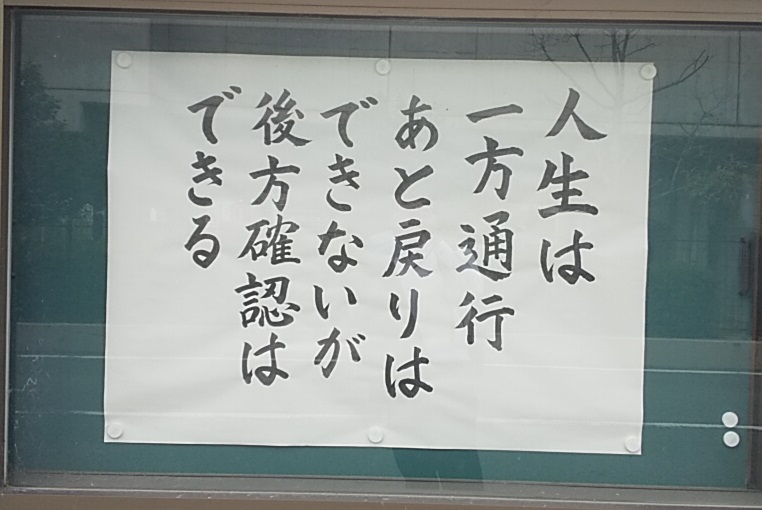 人生は
一方通行
あと戻りは
できないが
後方確認は
できる